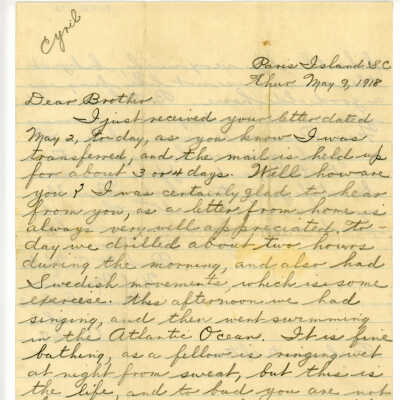 Cyril
Paris Island S.C.
Thur May 9, 1918
Dear Brother
I just received your letter dated
May 2, to-day, as you know I was
transferred, and the mail is held up
for about 3 or 4 days. Well how are
you? I was certainly glad to hear
from you, as a letter from home is
always very well appreciated, to-
day we drilled about two hours
during the morning, and also had
Swedish movements, which is some
exercese. this afternoon we had
singing, and then went swimming
in the Atlantic Ocean. It is fine
bathing, as a fellow is ringing wet
at night from sweat, but this is
the life, and to bad you are not